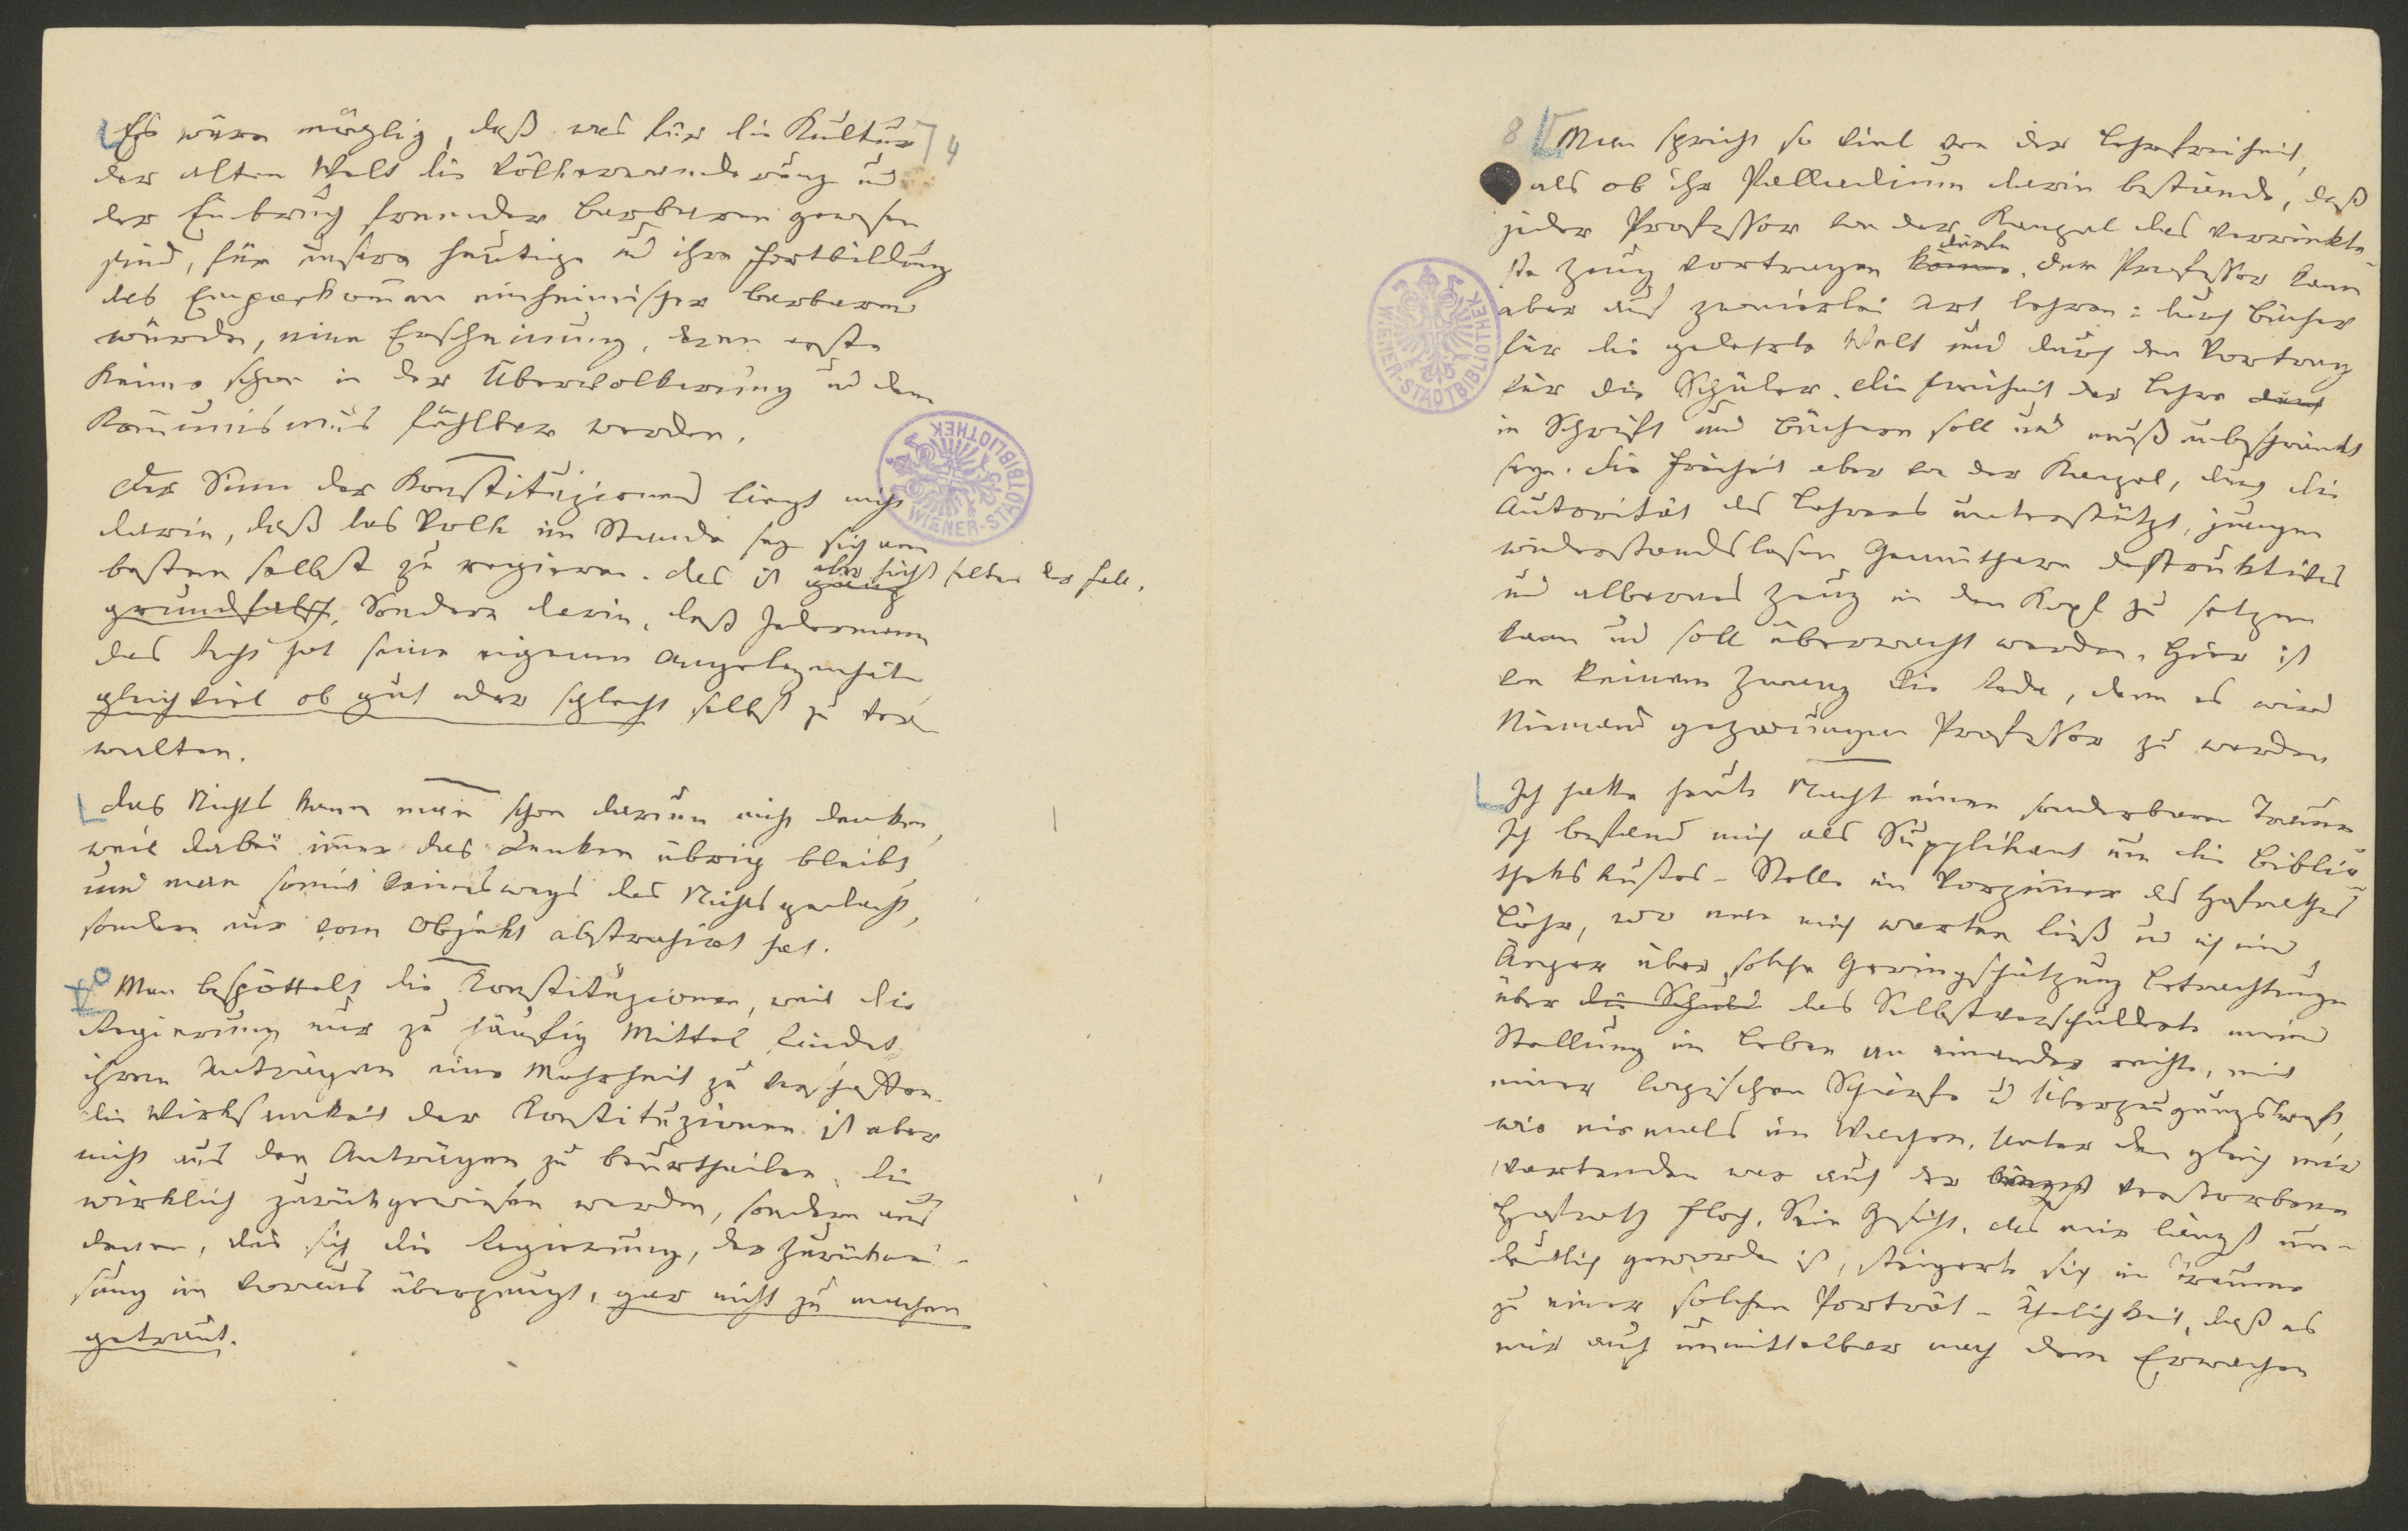 Es wäre möglich, daß was für die Kultur 4
der alten Welt die Völkerwanderung und
der Einbruch fremder Barbaren gewesen
sind, für unsere heutige und ihre Fortbildung
das Emporkommen einheimischer Barbaren
würde, eine Erscheinung, deren erste
Keime schon in der Übervölkerung und dem
Kommunismus fühlbar werden.
Der Sinn der Konstituzionen liegt nicht
darin, daß das Volk im Stande sey sich am
besten selbst zu regieren. das ist ganz aber höchst selten der Fall.
grundfalsch, Sondern darin, daß Jedermann
das Recht hat seine eigenen Angelegenheiten
gleichviel ob gut oder schlecht selbst zu ver-
walten.
Das Nichts kann man schon darum nicht denken,
weil dabei immer das Denken übrig bleibt,
und man somit keineswegs das Nichts gedacht,
sondern nur vom Objekt abstrahirt hat.
Man bespöttelt die Konstituzionen, weil die
Regierung nur zu häufig Mittel findet
ihren Anträgen eine Mehrheit zu verschaffen.
die Wirksamkeit der Konstituzionen ist aber
nicht aus den Anträgen zu beurtheilen, die
wirklich zurückgewiesen werden, sondern aus
denen, die sich die Regierung, der Zurückwei-
sung im Voraus überzeugt, gar nicht zu machen
getraut.
8 Man spricht so viel von der Lehrfreiheit,
als ob ihr Palladium darin bestünde, daß
jeder Professor von der Kanzel das verrückte-
ste Zeug vortragen könne dürfe. Der Professor kann
aber auf zweierlei Art lehren: durch Bücher
für die gelehrte Welt und durch den Vortrag
für die Schüler. Die Freiheit der Lehre durch
in Schrift und Büchern soll und muß unbeschränkt
seyn. Die Freiheit aber von der Kanzel, durch die
Autorität des Lehrers unterstützt, jungen
widerstandslosen Gemüthern destruktives
und albernes Zeug in den Kopf zu setzen
kann und soll überwacht werden. Hier ist
von keinem Zwang die Rede, denn es wird
Niemand gezwungen Professor zu werden
Ich hatte heute Nacht einen sonderbaren Traum
Ich befand mich als Supplikant um die Biblio-
thekskustos-Stelle im Vorzimmer des Hofrathes
Löhr, wo man mich warten ließ und ich im
Ärger über solche Geringschätzung Betrachtungen
über die Schuld das Selbstverschuldete meiner
Stellung im Leben an einander reihte, mit
einer logischen Schärfe u Überzeugungskraft,
wie niemals im Wachen. Unter den gleich mir
Wartenden war auch der längst verstorbene
Hofrath Floch. Sein Gesicht, das mir längst un-
deutlich geworden ist, steigerte sich im Traume
zu einer solchen Porträt-Ähnlichkeit, daß es
mir auch unmittelbar nach dem Erwachen
WIENER-STADTBIBLIOTHEK
WIENER-STADTBIBLIOTHEK